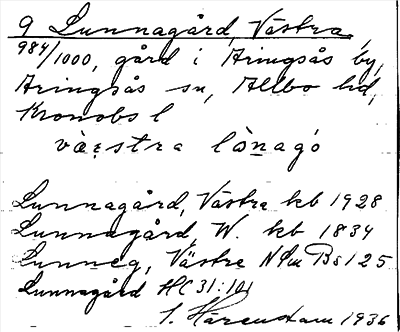 9 Lunnagård, Västra,
984/1000, gård i Aringsås by,
Aringsås sn, Allbo hd,
Kronobs l
væstra lònagó
Lunnagård, Västra kb 1928
Lunnagård, W. kb 1834
Lunneg, Västre NLu Bs 125
Lunnegård HC 31:101
S. Härenstam 1936